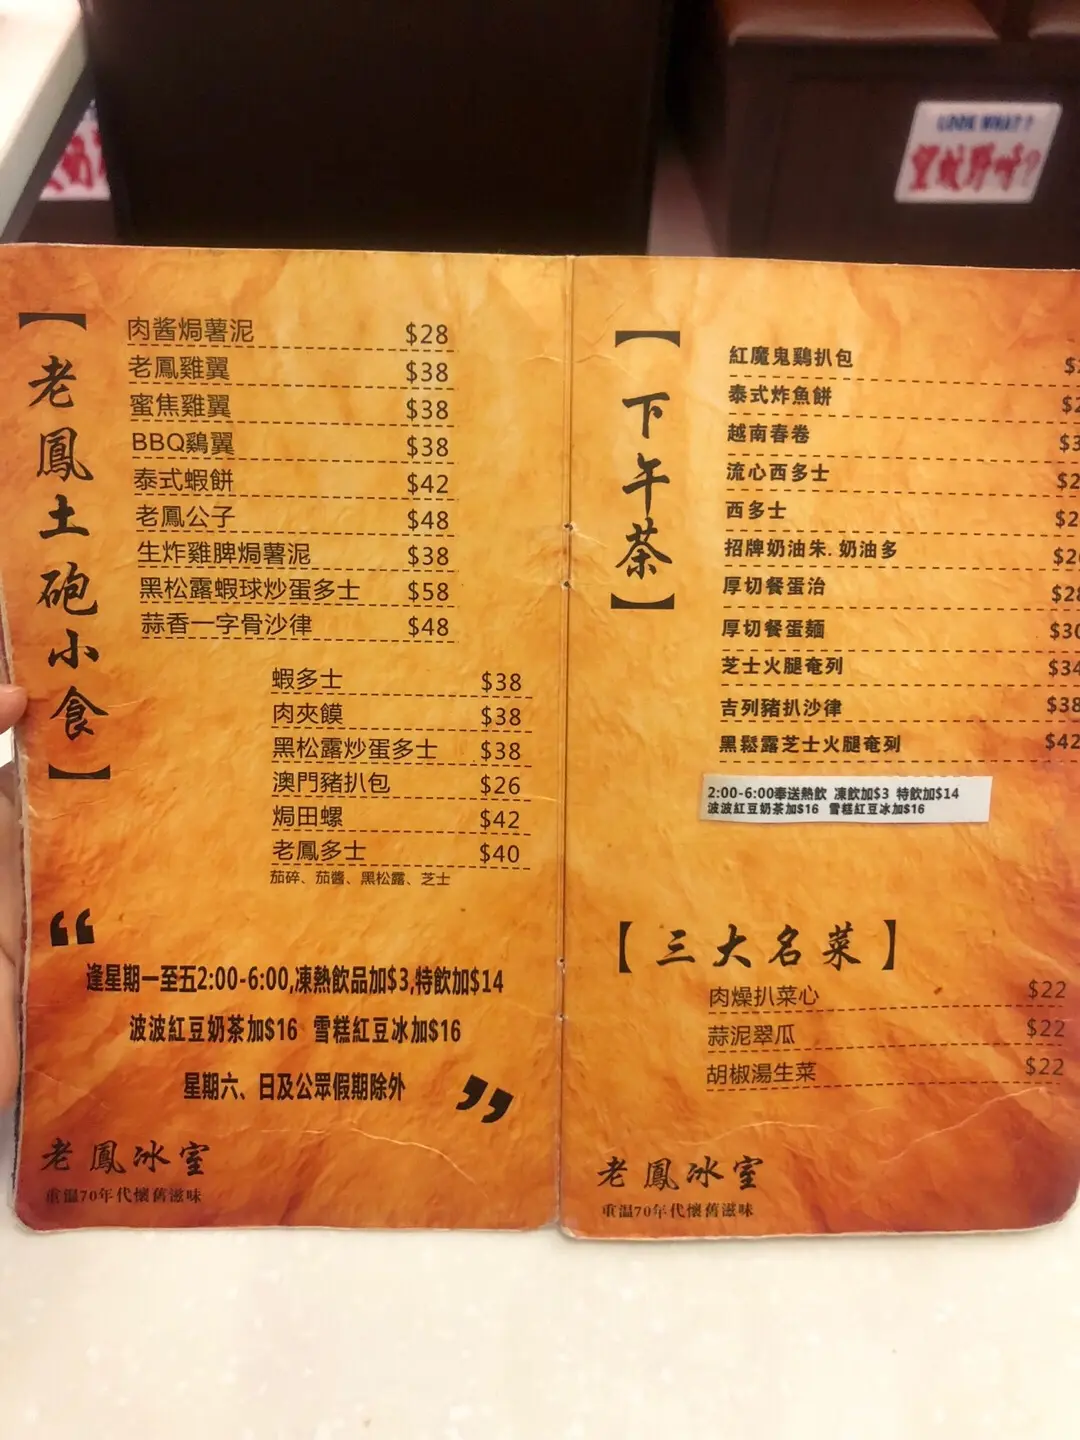 LOOK WHAT?
望蚊野呀?
【老鳳土砲小食】
肉酱焗薯泥 $28
老鳳雞翼 $38
蜜焦雞翼 $38
BBQ鷄翼 $38
泰式蝦餅 $42
老鳳公子 $48
生炸雞脾焗薯泥 $38
黑松露蝦球炒蛋多士 $58
蒜香一字骨沙律 $48
蝦多士 $38
肉夾饃 $38
黑松露炒蛋多士 $38
澳門豬扒包 $26
焗田螺 $42
老鳳多士 $40
茄碎、茄醬、黑松露、芝士
“
逢星期一至五2:00-6:00,凍熱飲品加$3,特飲加$14
波波紅豆奶茶加$16 雪糕紅豆冰加$16
星期六、日及公眾假期除外
”
老鳳冰室
重溫70年代懷舊滋味
【下午茶】
紅魔鬼鷄扒包
泰式炸魚餅
越南春卷
流心西多士
西多士
招牌奶油朱.奶油多
厚切餐蛋治 $28
厚切餐蛋麵 $30
芝士火腿奄列 $34
吉列豬扒沙律 $38
黑鬆露芝士火腿奄列 $42
2:00-6:00奉送熱飲 凍飲加$3 特飲加$14
波波紅豆奶茶加$16 雪糕紅豆冰加$16
【三大名菜】
肉燥扒菜心 $22
蒜泥翠瓜 $22
胡椒湯生菜 $22
老鳳冰室
重溫70年代懷舊滋味